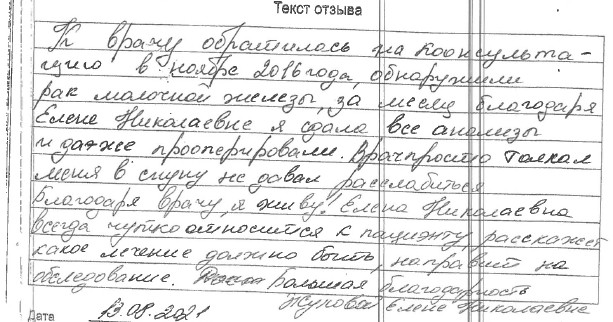 Текст отзыва
К врачу обратилась на коонсульта-
цию в ноябре 2016 года, обнаружили
рак молочной железы, за месяц благодаря
Елене Николаевне я сдала все анализы
и даже прооперировали. Врач просто толкал
меня в спину не давал расслабиться
Благодаря врачу, я живу! Елена Николаевна
всегда чутко относится к пациенту, расскажет
какое лечение должно быть, направит на
обследование. Большая благодарность
Елене Николаевне
Дата 13.08.2021